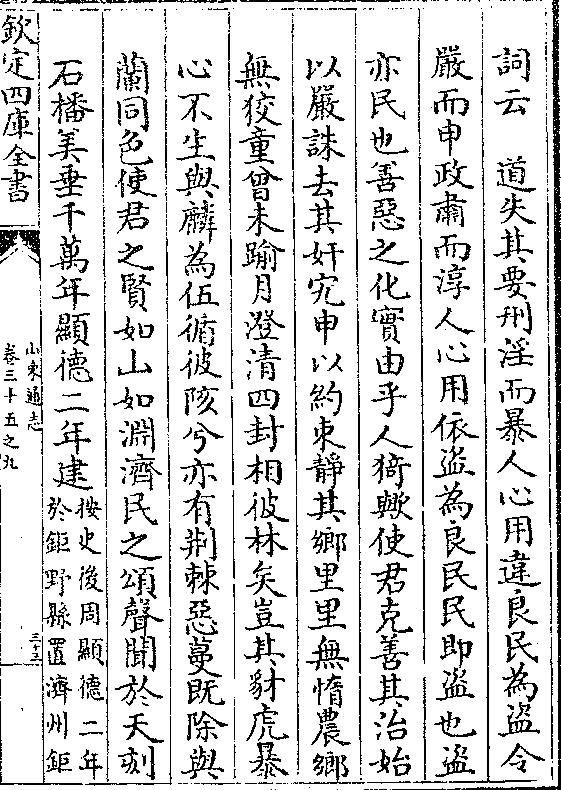 詞云　道失其要刑淫而暴人心用違良民為盜令
嚴而申政肅而淳人心用依盜為良民民即盜也盜
亦民也善惡之化實由乎人猗歟使君克善其治始
以嚴誅去其奸宄申以約束靜其鄉里里無惰農鄉
無狡童曾未踰月澄清四封相彼林矣豈其豺虎暴
心不生與麟為伍循彼陔兮亦有荆棘惡蔓既除與
蘭同色使君之賢如山如淵濟民之頌聲聞於天刻
石播美垂千萬年顯德二年建
按史後周顯德二年
於鉅野縣置濟州鉅
欽定四庫全書
山東通志
卷三十五之九
三十三